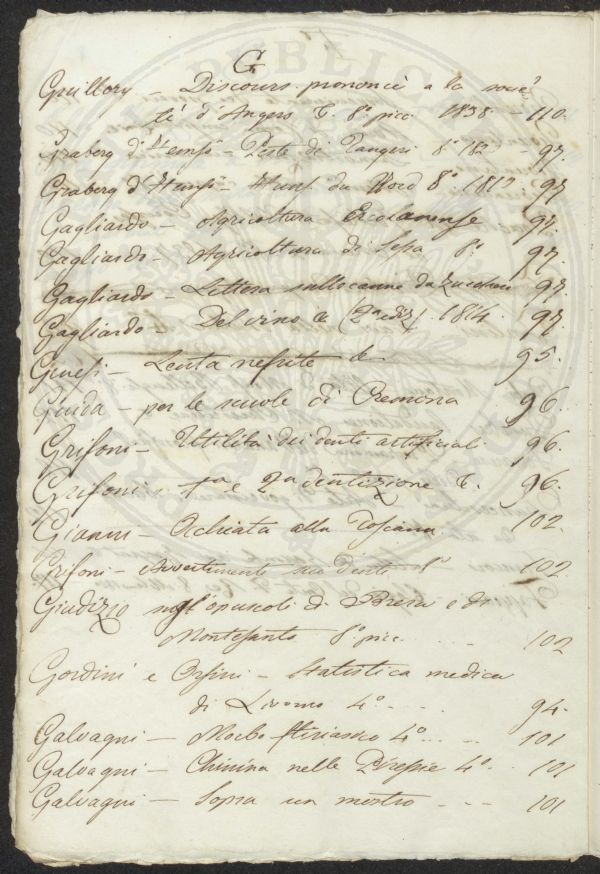 G
Guillory - Discours prononcé a la socié
té d'Angers &. 8° picc. 1838. - 110.
Graberg d'Hemsö - Peste di Tangeri 8° 182 - 97.
Graberg d'Hemsö - du Nord 8° 1812 97
Gagliardo - Agricoltura Ercolanense 97.
Gagliardo - Agricoltura di Sessa 8° 97.
Gagliardo - Lettera sulle canne da zucchero 97.
Gagliardo - Del vino & (2a ediz) 1814. 97
Ginesi - Lenta nefrite &. 95.
Giuda - per le scuole di Cremona 96.
Grifoni - Utilità dei denti artificiali 96.
Grifoni - 1a e 2a dentizione &. 96.
Gianni - Occhiata alla Toscana 102.
Grifoni - Avvertimenti sui Denti 8° 102.
Giudizio sugl'opuscoli di Brera e di
Montesanto 8° picc. . . . - 102
Gordini e Orsini - Statistica medica
di Livorno 4° - . . 94.
Galvagni - Morbo 4° . . - 101
Galvagni - Chinina nelle Piressie 4° . . 101
Galvagni - Sopra un mostro - . - 101
PUBLICA